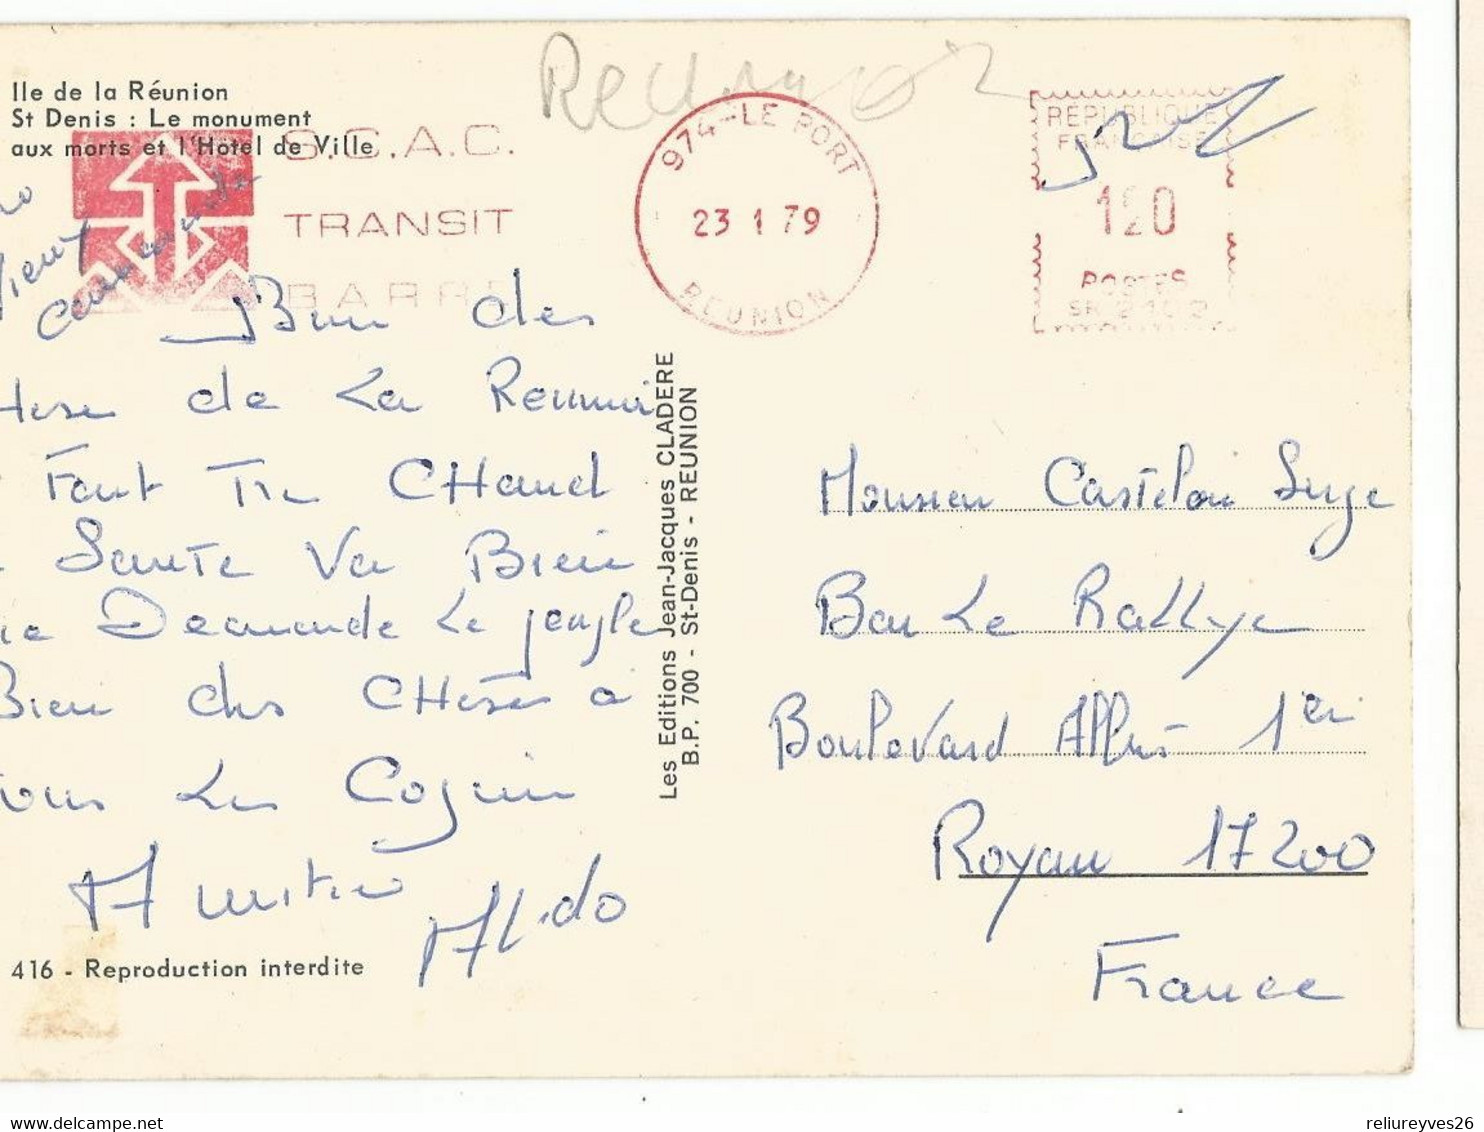 Reunion
Ile de la Réunion
St Denis : Le monument
aux morts et l'Hôtel de Ville
S.C.A.C.
TRANSIT
BARRE
974-LE PORT
23 1 79
REUNION
REPUBLIQUE
FRANCAISE
120
POSTES
Bien des
Hose de La Reunion
Faut Tre CHaud
Sante Va Bien
Demande Le
Bien des CHoses a
Tous Les Copain
Amitie
Aldo
Les Editions Jean-Jacques CLADERE
B.P. 700 - St-Denis - REUNION
Monsieur Castelain Serge
Bar Le Rallye
Boulevard Albert 1er
Royan 17200
France
416 - Reproduction interdite
https://www.delcampe.net
reliureyves26